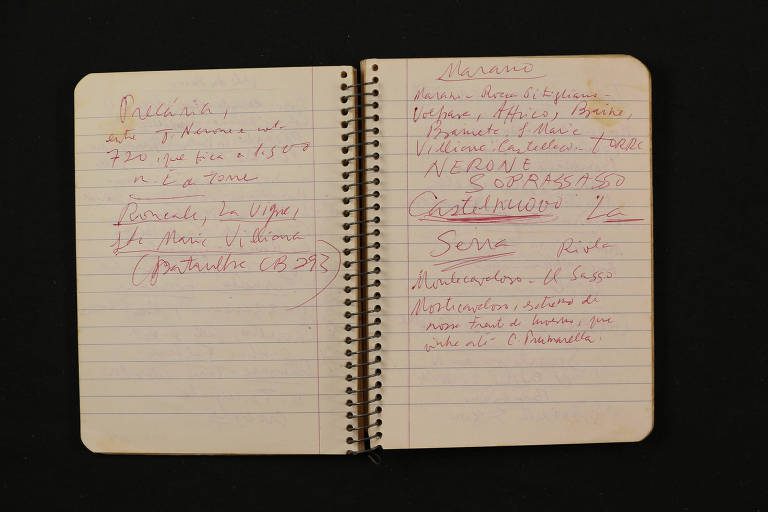 Precária,
entre T. Nerone e
720, que fica a
n. E da Torre
Roncale, La Vigne,
Sta Maria Villiana
CB 293)
Marano
Marano - Rocca Pitigliana -
Volpara, Africo, Braine,
S. Maria
Villiana. Castellaccio - TORRE
NERONE
SOPRASSASSO
Castelnuovo La
Serra Riola
Montecavoloso - Il Sasso
Montecavoloso, extremo de
nosso Front de Inverno, que
vinha até C. Prumarella.